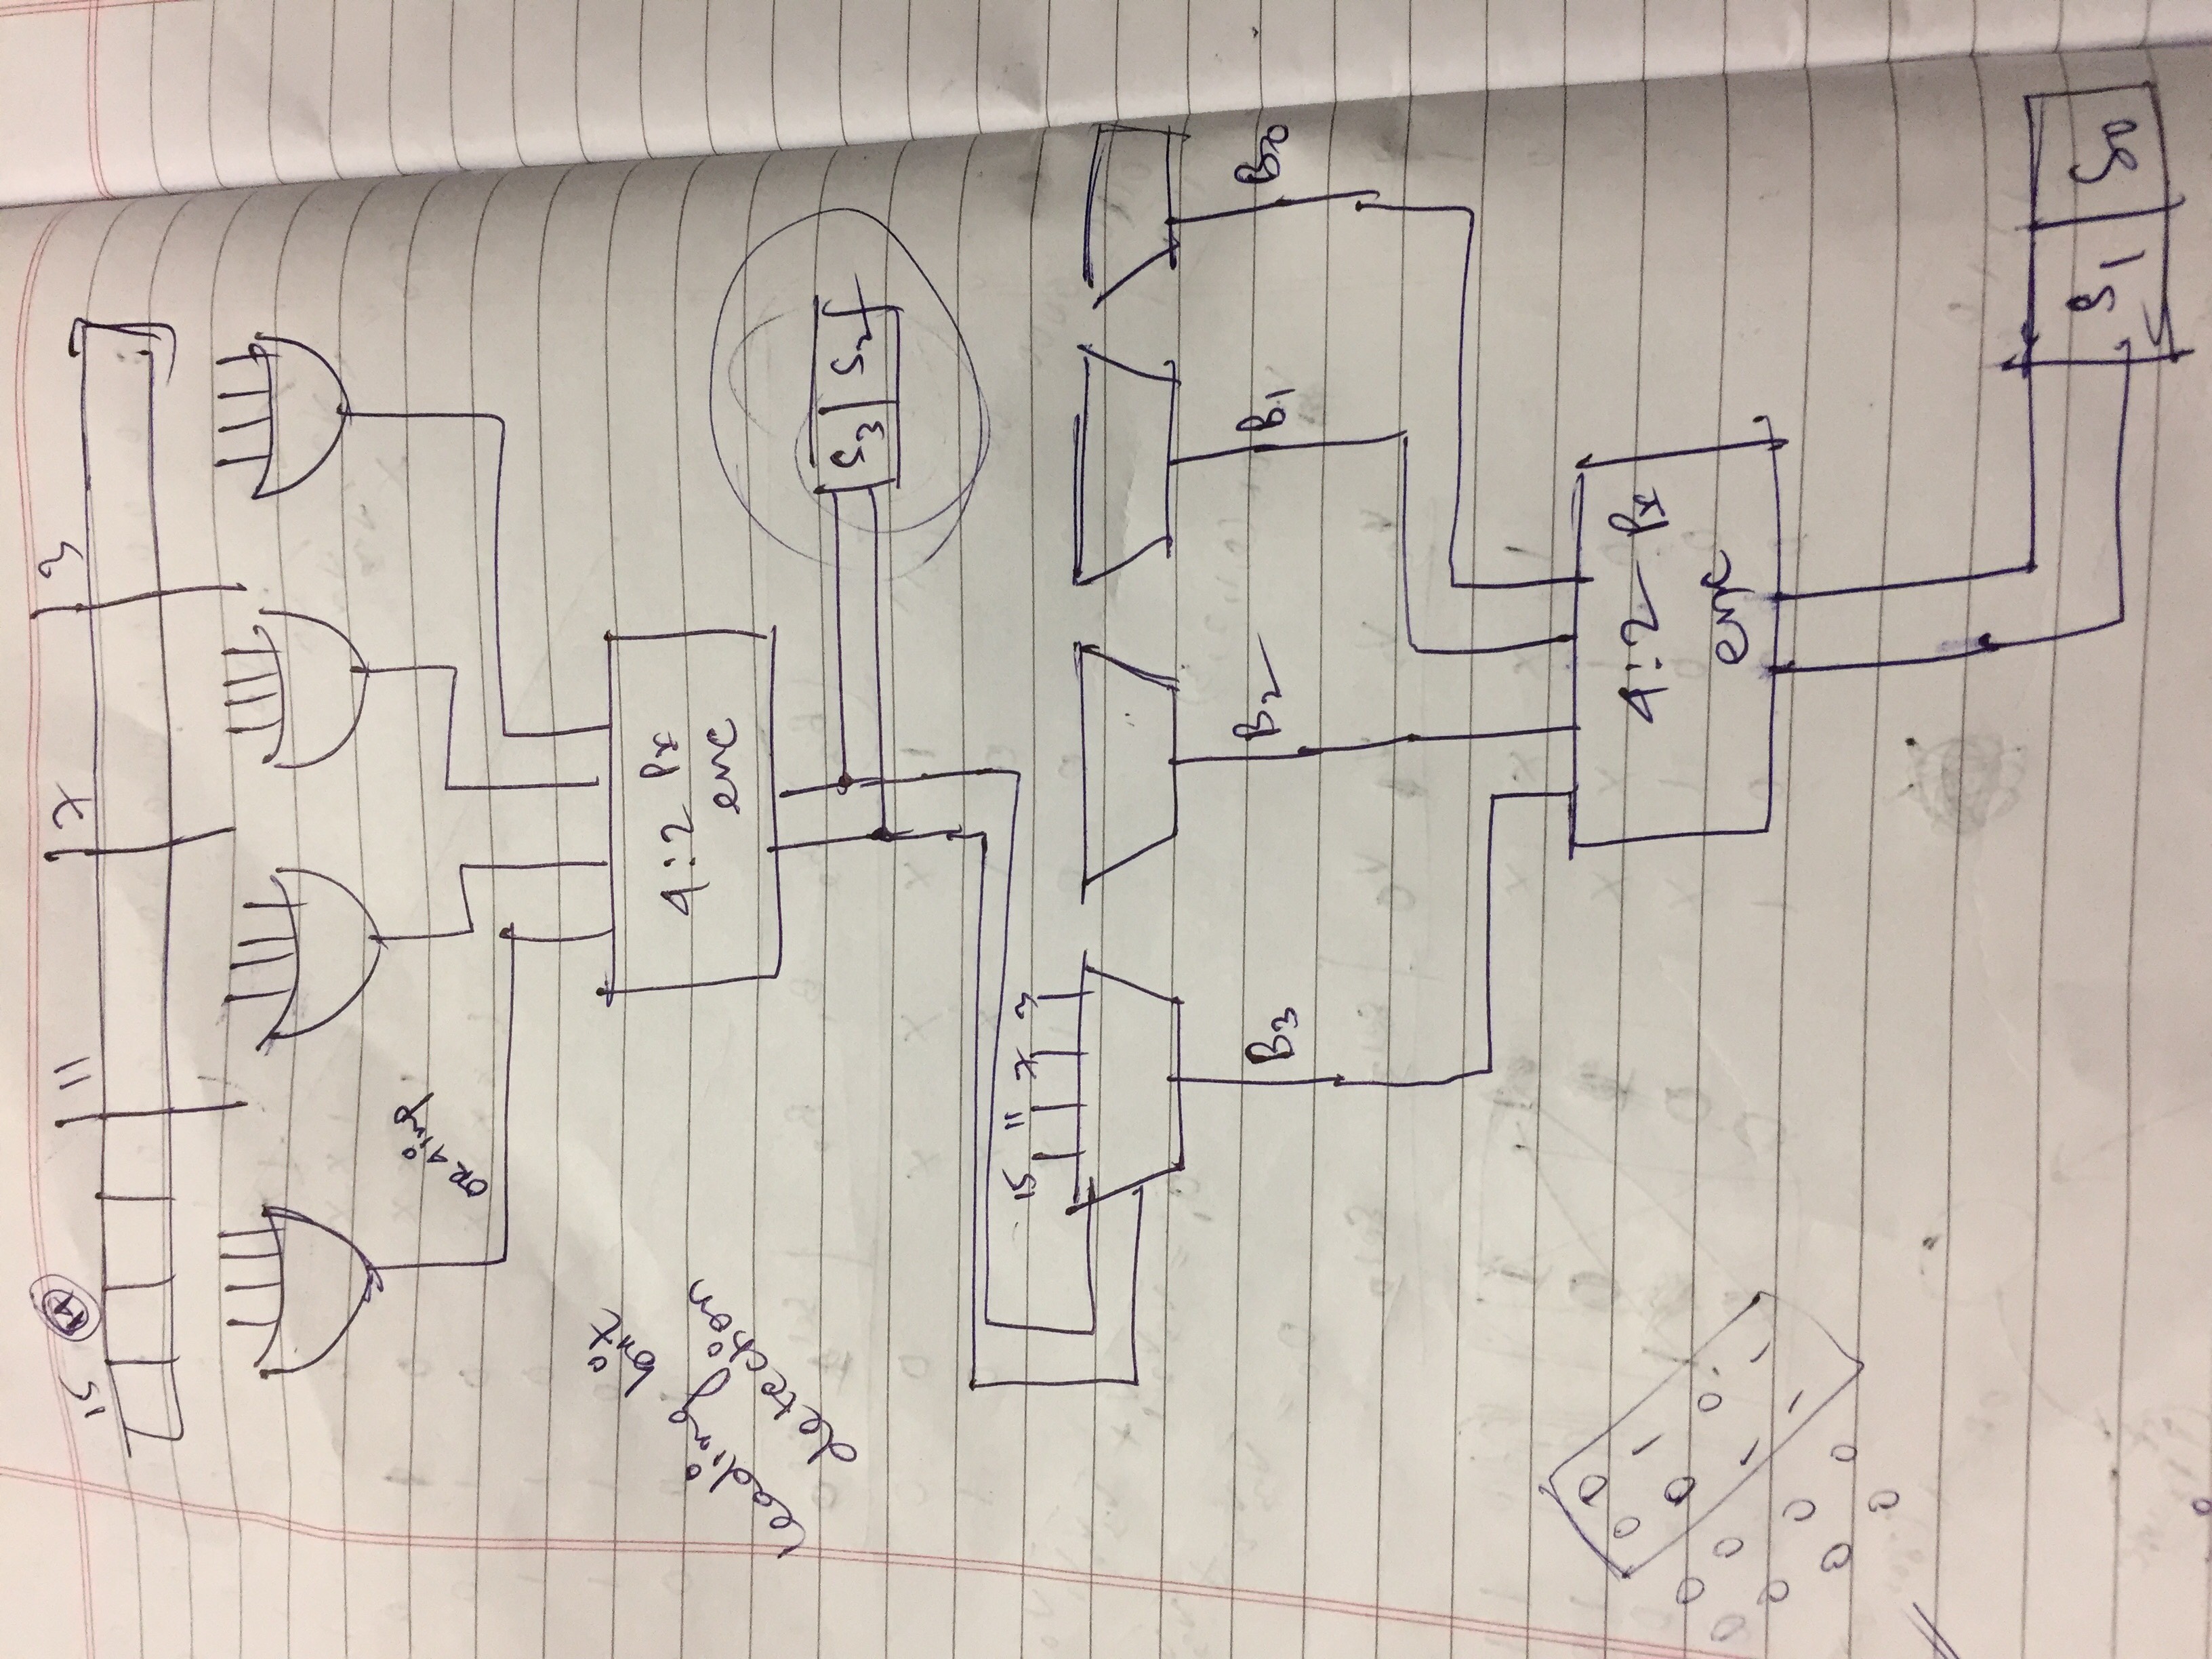 15 14 11 7 3
OR 4 inp
leading bit
detection
4:2 Pr
enc
S3 S2
15 11 7 3
B3 B2 B1 B0
4:2 Pr
enc
0 0
0 1
0 0 1 0
0 0 1 1
0 0 1
0 0
0
S1 S0